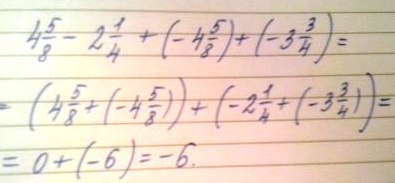 4 5/8 - 2 1/4 + (-4 5/8) + (-3 3/4) =
= (4 5/8 + (-4 5/8)) + (-2 1/4 + (-3 3/4)) =
= 0 + (-6) = -6.